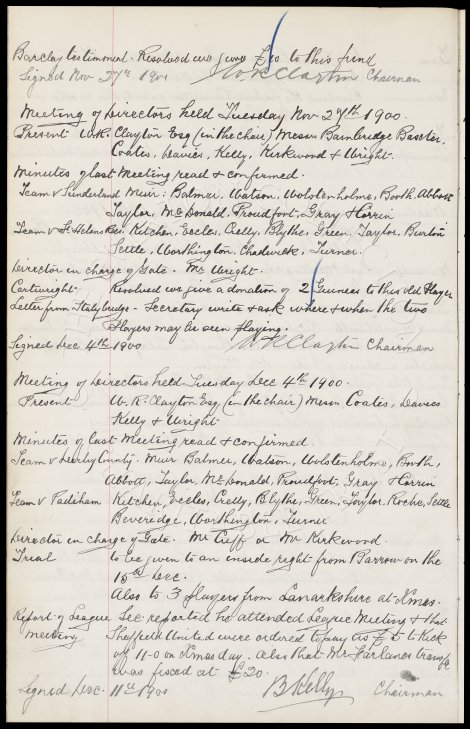 Barclay testimonial. Resolved we give £20 to this fund
Signed Nov 27th 1900 W R Clayton Chairman
Meeting of Directors held Tuesday Nov 27th 1900.
Present W.R. Clayton Esq (in the chair) Messrs Bainbridge Baxter,
Coates, Davies, Kelly, Kirkwood & Wright.
Minutes of last Meeting read & confirmed.
Team v Sunderland Muir: Balmer, Watson, Wolstenholme, Booth, Abbott
Taylor, McDonald, Proudfoot, Gray & Horrin
Team v St Helens Rec. Kitchen, Eccles, Crelly, Blythe, Green, Taylor, Burton
Settle, Worthington, Chadwick, Turner.
Director in charge of Gate - Mr Wright.
Cartwright. Resolved we give a donation of 2 Guineas to this old Player
Letter from Stalybridge - Secretary write & ask where & when the two
Players may be seen playing.
Signed Dec 4th 1900 W R Clayton Chairman
Meeting of Directors held Tuesday Dec 4th 1900.
Present W. R. Clayton Esq (in the chair) Messrs Coates, Davies
Kelly & Wright
Minutes of last Meeting read & confirmed.
Team v Derby County. Muir Balmer, Watson, Wolstenholme, Booth,
Abbott, Taylor, McDonald, Proudfoot, Gray Horrin
Team v Padiham Kitchen, Eccles, Crelly, Blythe, Green, Taylor, Roche, Settle
Beveridge, Worthington, Turner
Director in charge of Gate. Mr Cuff or Mr Kirkwood.
Trial to be given to an inside right from Barrow on the
15th Dec.
Also to 3 players from Lanarkshire at Xmas.
Report of League Sec reported he attended League Meeting & that
Meeting Sheffield United were ordered to pay us £5 to kick
off 11-0 on Xmas day. Also that Mr Harlands transfer
was fixed at £20.
Signed Dec. 11th 1900 B Kelly Chairman